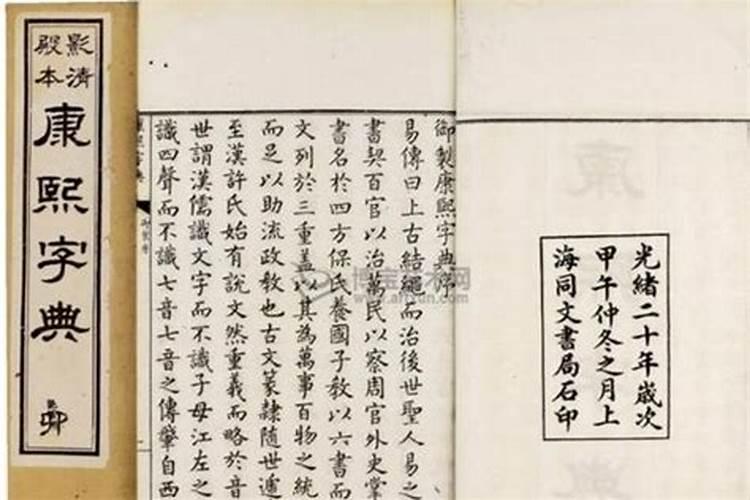 影清
殿本
康熙字典
卯
御製康熙字典序
易傳曰上古結繩而治後世聖人易之
書契百官以治萬民以察周官外史掌
書名於四方保氏養國子教以六書而
文列於三重蓋以其為萬事百物之統
而足以助流政教也古文篆隸隨世遞
至漢許氏始有說文然重義而略於音
世謂漢儒識文字而不識子母江左之
識四聲而不識七音七音之傳肇自西
光緒二十年歲次
甲午仲冬之月上
海同文書局石印
博宝艺术网
www.artxun.com